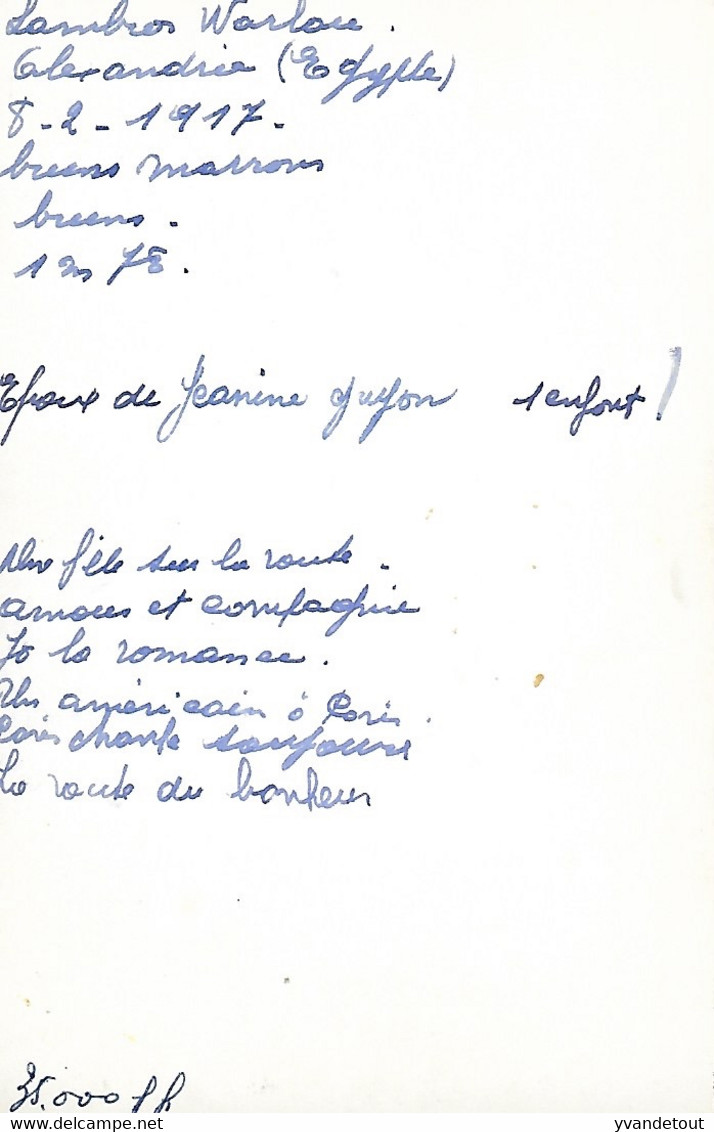 Lambros Worlou.
Alexandrie (Egypte)
8-2-1917-
bruns marrons
bruns.
1 m 78.
Epoux de Jeanine Guyon 1 enfant!
Une fille sur la route.
amour et compagnie
Jo la romance.
Un américain à Paris.
Paris chante toujours
La route du bonheur
35.000
yvandetout